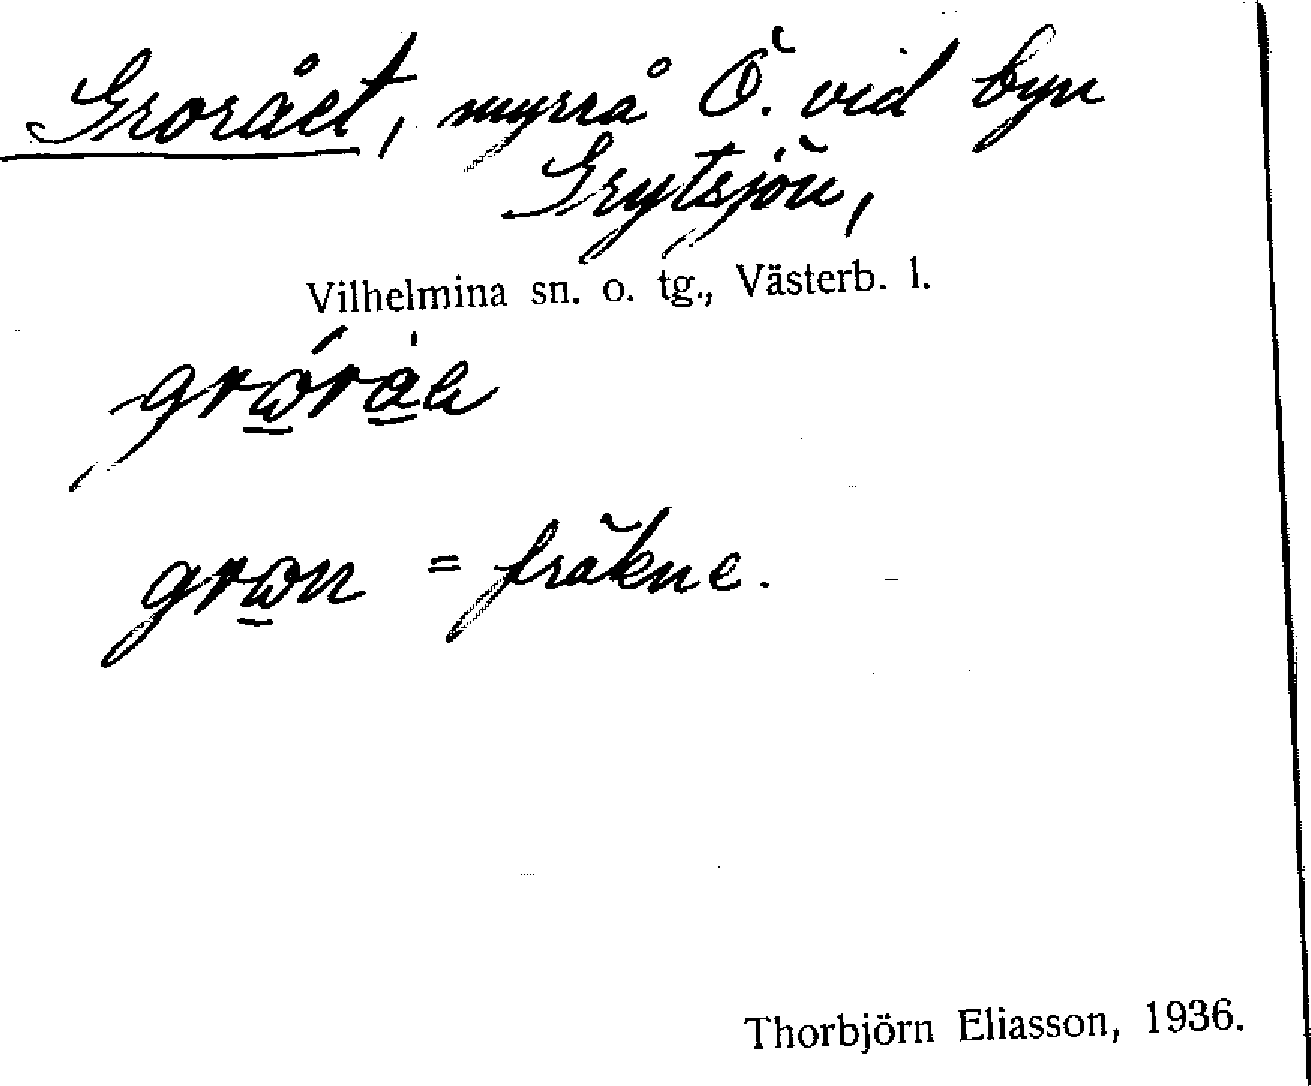 Groråct, myrrå Ö. vid byn
Grytsjön,
Vilhelmina sn. o. tg., Västerb. l.
= fräkne.
Thorbjörn Eliasson, 1936.